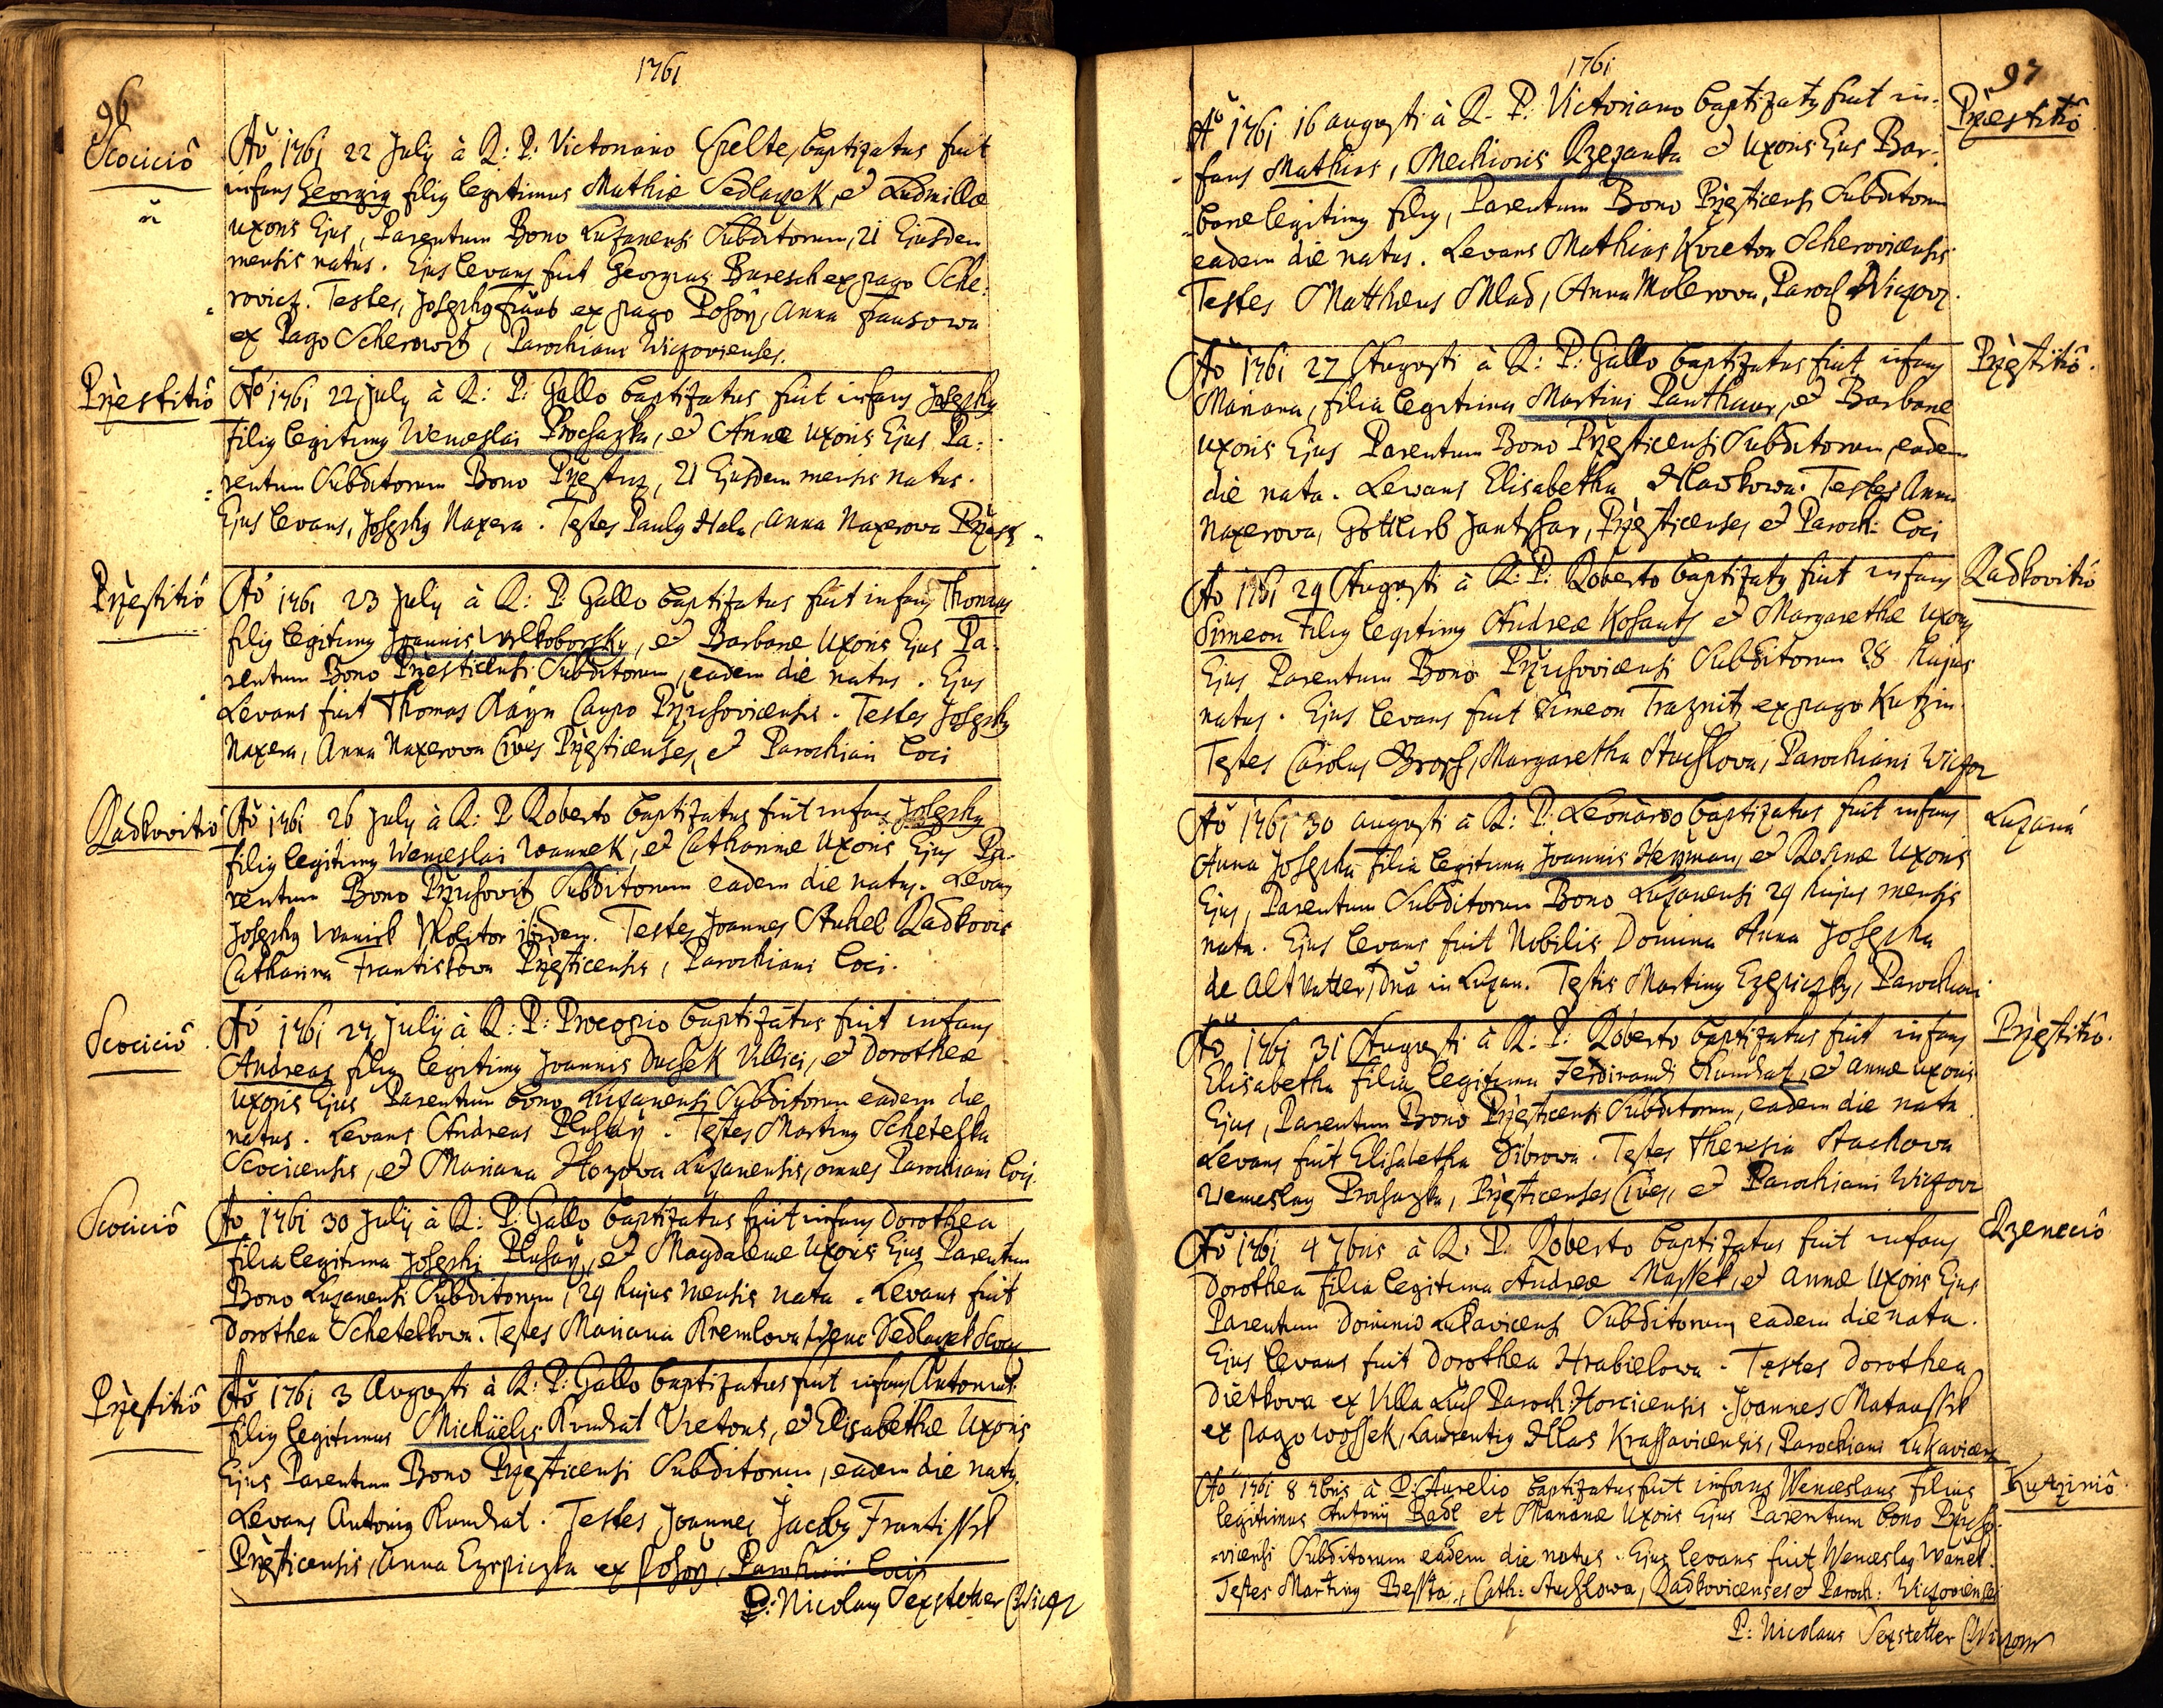 1761
96
Scocicio
Aõ 1761 22 July à R: P: Victoriano Spelte, baptizatus fuit
infans Georgiq filiq legitimus Mathiæ Sedlaczek, et Ludmillæ
uxoris Ejus, Parentum Bono Luzanensi Subditorum, 21 Ejusdem
mensis natus. Ejus levans fuit Georgius Buresch ex pago Sche:
rovicz. Testes, Josephq ex pago Posoy, Anna Fausowa
ex Pago Scherowitz, Parochiani Wiczovienses.
Przestitio
Aõ 1761 22 July à R: P: Gallo baptizatus fuit infans Josephq
filiq legitimq Wenceslai Prochazka, et Annæ Uxoris Ejus Pa:
rentum Subditorum Bono Przesticz, 21 Ejusdem mensis natus.
Ejus levans, Josephq Naxera. Testes Paulq Hala, Anna Naxerova Przest
Przestitio
Aõ 1761 23 July à R: P Gallo baptizatus fuit infans Thomas
filiq legitimq Joannis Wlkoborsky, et Barbaræ Uxoris Ejus Pa:
rentum Bono Przesticensi Subditorum, eadem die natus. Ejus
Levans fuit Thomas Raýn Caupo Przichovicensis. Testes Josephq
Naxera, Anna Naxerova Cives Przesticenses, et Parochiani loci
Radkovitio
Aõ 1761 26 July à R: P Roberto baptizatus fuit infans Josephq
filiq legitimq Wenceslai Wannek, et Catharinæ Uxoris Ejus Pa-
rentum Bono Przichovitz Subditorum eadem die natq. Levans
Josephq Wanick Molitor ibidem. Testes Joannes Stuhel Radkovic
Catharina Frantiskova Przesticensis, Parochiani loci.
Scocicio
Aõ 1761 27 Julij à R: P: Procopio baptizatus fuit infans
Andreas filiq legitimq Joannis Duchek Villici, et Dorotheæ
Uxoris Ejus Parentum bono Luzanensi Subditorum eadem die
natus. Levans Andreas Pluhay. Testes Martinq Schetelka
Scocicensis, et Mariana Hozova Luzanensis, omnes Parochiani loci.
Scocicio
Aõ 1761 30 Julij à R: P: Gallo baptizatus fuit infans Dorothea
filia legitima Josephi Pluhay, et Magdalenæ Uxoris Ejus Parentum
Bono Luzanensi Subditorum, 29 hujus mensis nata. Levans fuit
Dorothea Schetelkowa. Testes Mariana Kremlova, Wenc Sedlaczek Scocic
Przestitio
Aõ 1761 3 Augusti à R: P: Gallo baptizatus fuit infans Antonius
filiq legitimus Michäelis Kundrat Vietoris, et Elisabethæ Uxoris
Ejus Parentum Bono Przesticensi Subditorum, eadem die natq,
Levans Antoniq Kundrat. Testes Joannes Jacobq Frantissek
Przesticensis, Anna Czepiczka ex Posoy, Parochiani locis
P: Nicolaus Sexstetter C Wicz
1761
97
Przestitio
Aõ 1761 16 augusti à R. P: Victoriano baptizatq fuit in:
fans Mathias, Mechioris Rzezanka et Uxoris Ejus Bar:
baræ legitimq filiq, Parentum Bono Przesticensi Subditorum
eadem die natus. Levans Mathias Kvieton Scherovicensis
Testes Matthæus Mlad, Anna Molerova, Paroch Wiczov.
Przestitio.
Aõ 1761 27 Augusti à R: P: Gallo baptizatus fuit infans
Mariana, filia legitima Martini Panthaur, et Barbaræ
uxoris Ejus Parentum Bono Przesticensi Subditorum, eadem
die nata. Levans Elisabetha Hlawkowa. Testes Anna
Naxerova, Gottlieb Jantschar, Przesticenses et Paroch: loci
Radkovitio
Aõ 1761 29 Augusti à R: P: Roberto baptizatq fuit infans
Simeon filiq legitimq Andreæ Kohauts et Margarethæ Uxoris
Ejus Parentum Bono Przichovicensi Subditorum 28 hujus
natus. Ejus levans fuit Simeon Traznitz ex pago Kutzin.
Testes Carolus Brosch, Margaretha Stuchlova, Parochiani Wiczov
Luzana
Aõ 1761 30 augusti à R: P: Leonardo baptizatus fuit infans
Anna Josepha filia legitima Joannis Heyman, et Rosinæ Uxoris
Ejus, Parentum Subditorum Bono Luzanensi 29 hujus mensis
nata. Ejus levans fuit Nobilis Domina Anna Josepha
de Altvatter, Dna in Luzan. Testis Martinq Czepiczky, Parochiani
Przestitio.
Aõ 1761 31 Augusti à R: P: Roberto baptizatus fuit infans
Elisabetha filia legitima Ferdinandi Kundrat, et Annæ uxoris
Ejus, Parentum Bono Przesticensi Subditorum, eadem die nata
Levans fuit Elisabetha Dibrowa. Testes Theresia Stachova
Wenceslaq Prochazka, Przesticenses Cives, et Parochiani Wiczov
Rzenecio
Aõ 1761 4 7bris à R: P: Roberto baptizatus fuit infans
Dorothea filia legitima Andreæ Massek, et Annæ Uxoris Ejus
Parentum Dominio Lukavicensi Subditorum, eadem die nata.
Ejus levans fuit Dorothea Hrabielowa. Testes Dorothea
Dietkova ex Villa Luch Paroch: Horcicensis. Joannes Mataussek
ex pago Wossek, Laurentiq Hlas Krassavicensis, Parochiani Lukavicens
Kutzinio
Aõ 1761 8 7bris à P: Aurelio baptizatus fuit infans Wenceslaus filius
legitimus Antonij Radl et Marianæ Uxoris Ejus Parentum bono Przicho-
-vicensi Subditorum eadem die natus. Ejus levans fuit Wenceslaq Wanek.
Testes Martinq Bessta, Cath: Stuchlowa, Radkovicenses et Paroch: Wiczovienses
P: Nicolaus Sexstetter C Wiczov